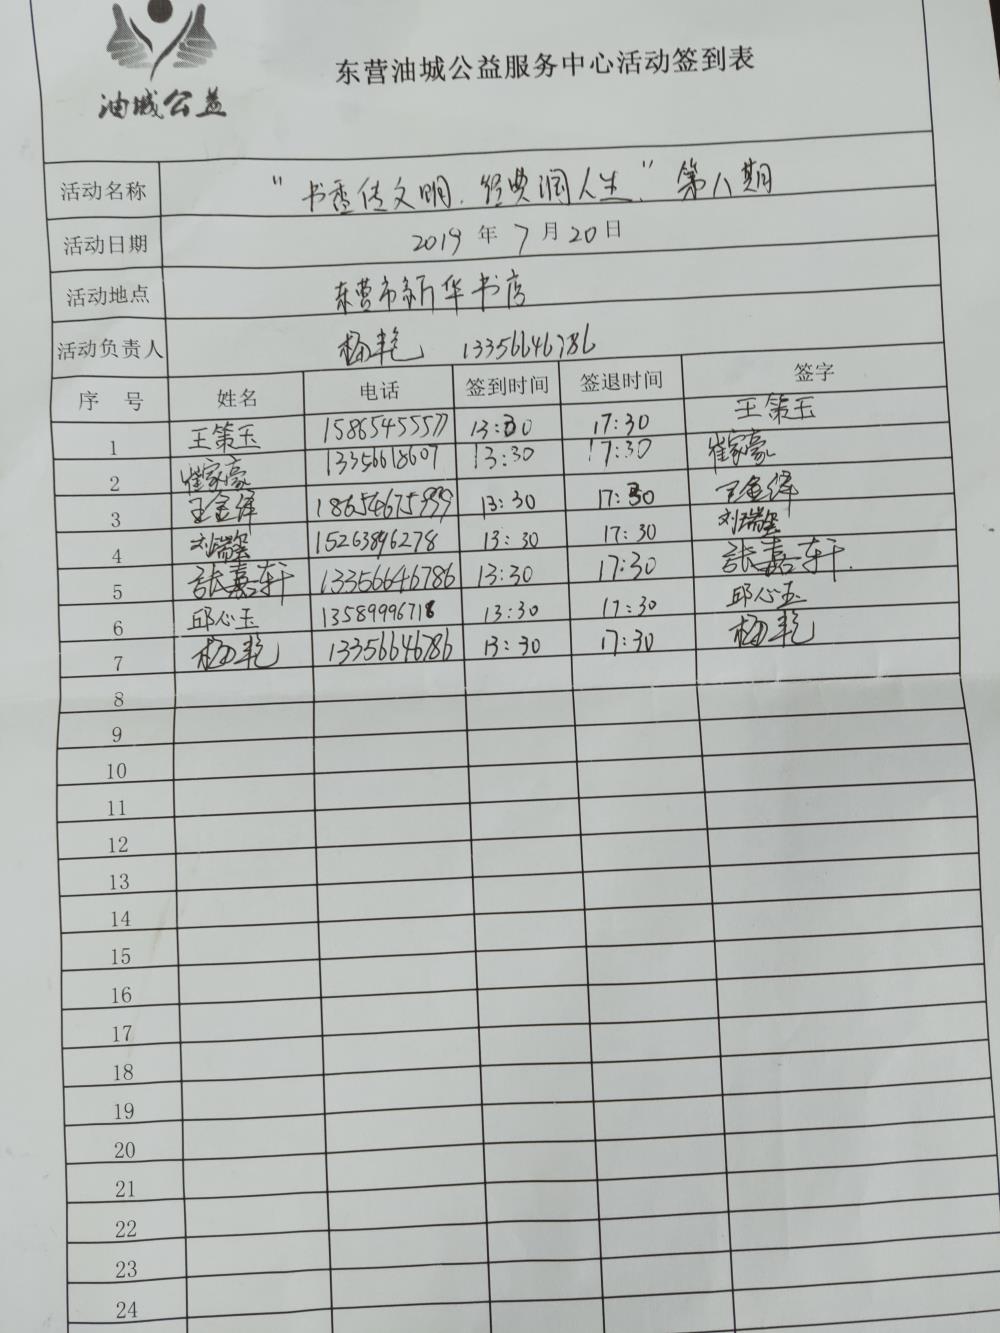 油城公益
东营油城公益服务中心活动签到表
活动名称 "书香传文明、经典润人生" 第八期
活动日期 2019 年 7 月 20 日
活动地点 东营市新华书店
活动负责人 杨艳 13356646786
序 号 姓名 电话 签到时间 签退时间 签字
1 王策玉 15865455577 13:30 17:30 王策玉
2 崔家豪 13356618607 13:30 17:30 崔家豪
3 王金绎 18654675999 13:30 17:30 王金绎
4 15263896278 13:30 17:30
5 张嘉轩 13356646786 13:30 17:30 张嘉轩.
6 邱心玉 13589996718 13:30 17:30 邱心玉
7 杨艳 13356646786 13:30 17:30 杨艳
8
9
10
11
12
13
14
15
16
17
18
19
20
21
22
23
24